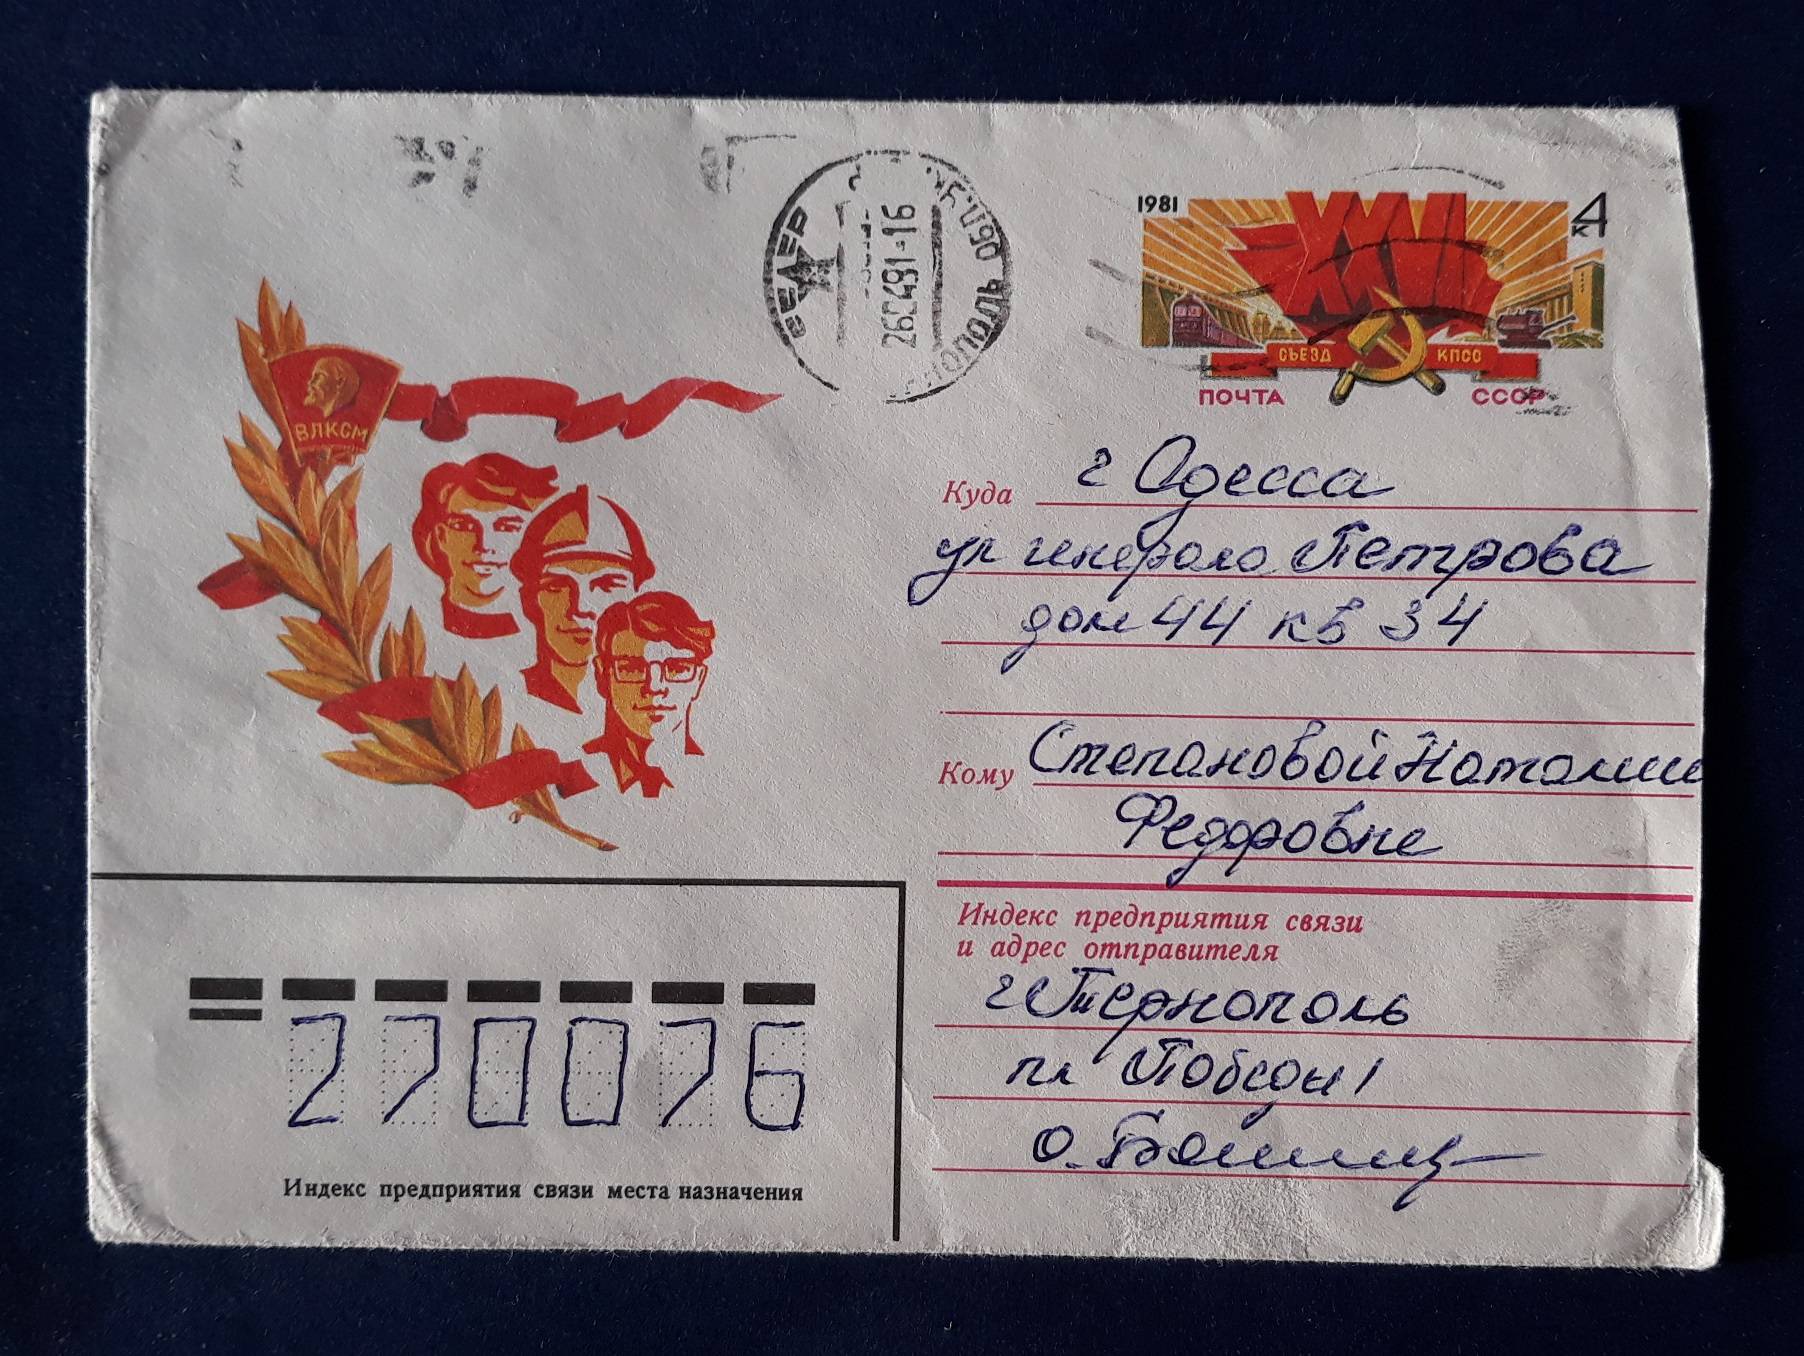 1981
4
к
XXVI
СЪЕЗД КПСС
ПОЧТА СССР
260491-16
ВЛКСМ
Куда г Одесса
ул генерала Петрова
дом 44 кв 34
Кому Степановой Наталии
Федоровне
Индекс предприятия связи
и адрес отправителя
г Тернополь
пл Победы 1
270076
Индекс предприятия связи места назначения